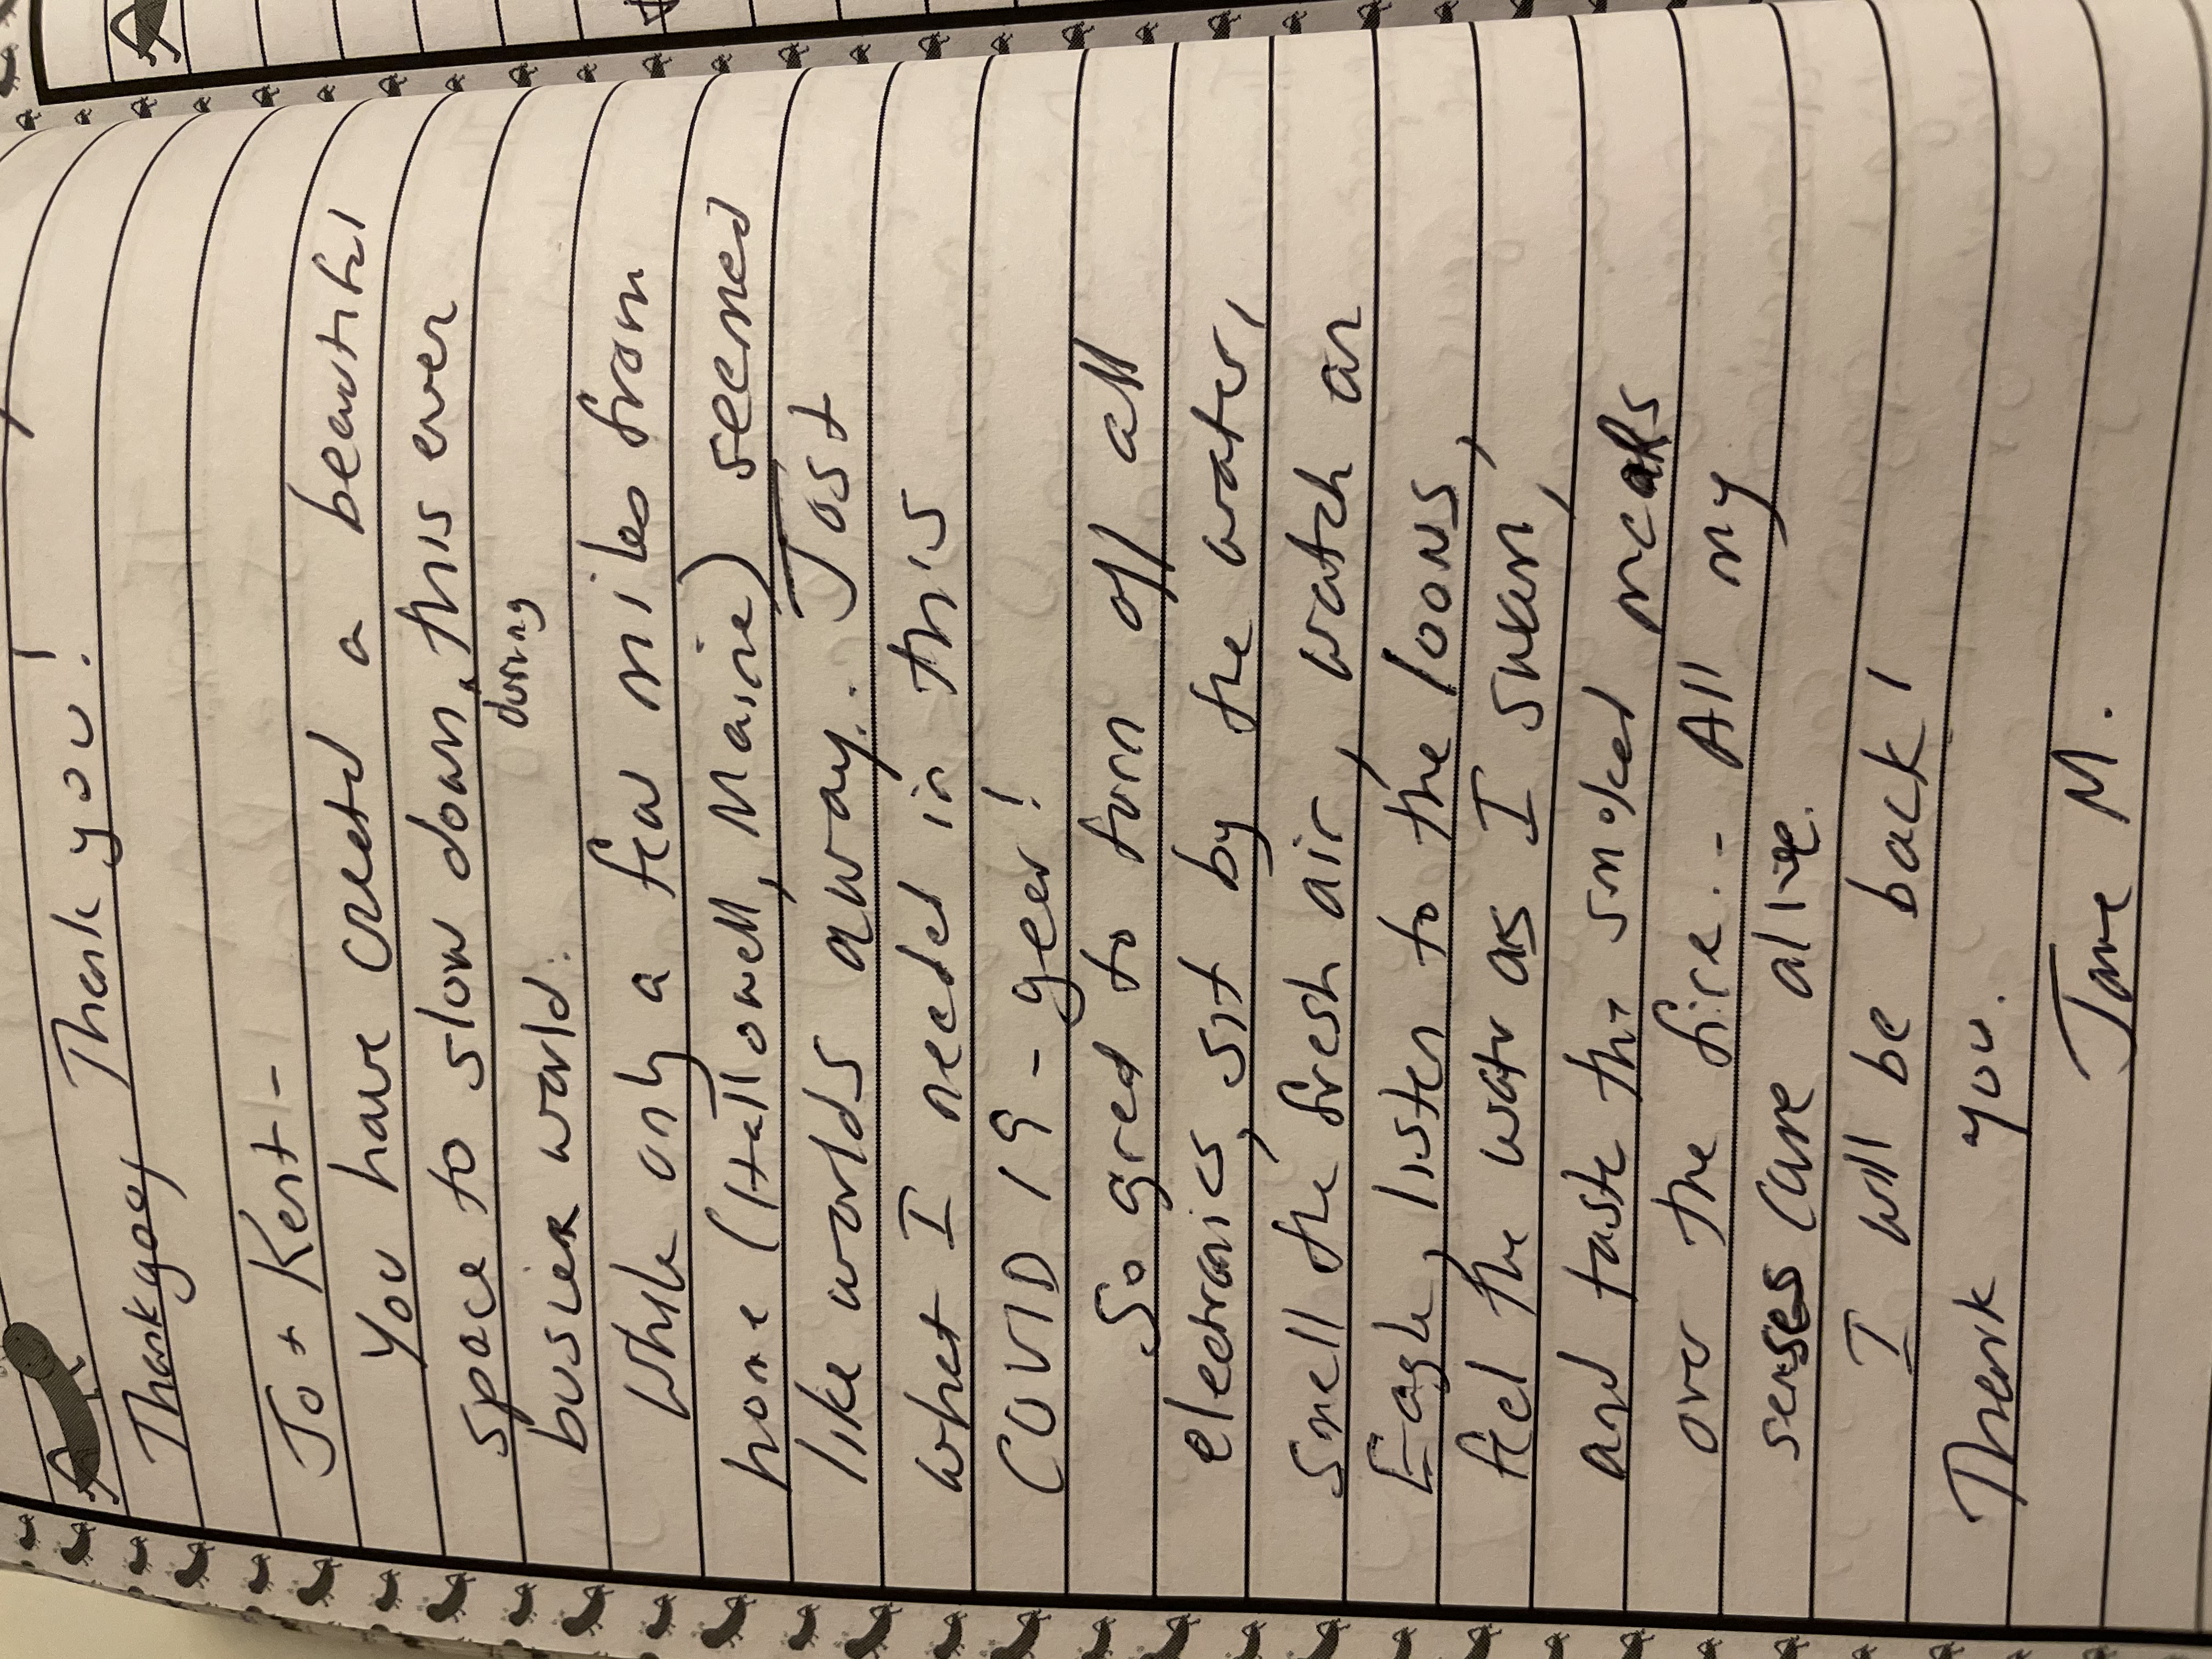 Thank you!
Thankyou
Jo + Kent -
You have creatd a beautiful
space to slow down, this ever
during
busier world.
While only a few miles from
home (Hallowell, Maine) seemed
like worlds away. Just
what I needed in this
COVID 19 - year!
So great to turn off all
electronics, sit by the water,
smell the fresh air, watch an
Eagle, listen to the loons,
feel the watr as I swam,
and taste the smoked meals
over the fire... All my
senses came alive.
I will be back!
Thank you.
Jane M.